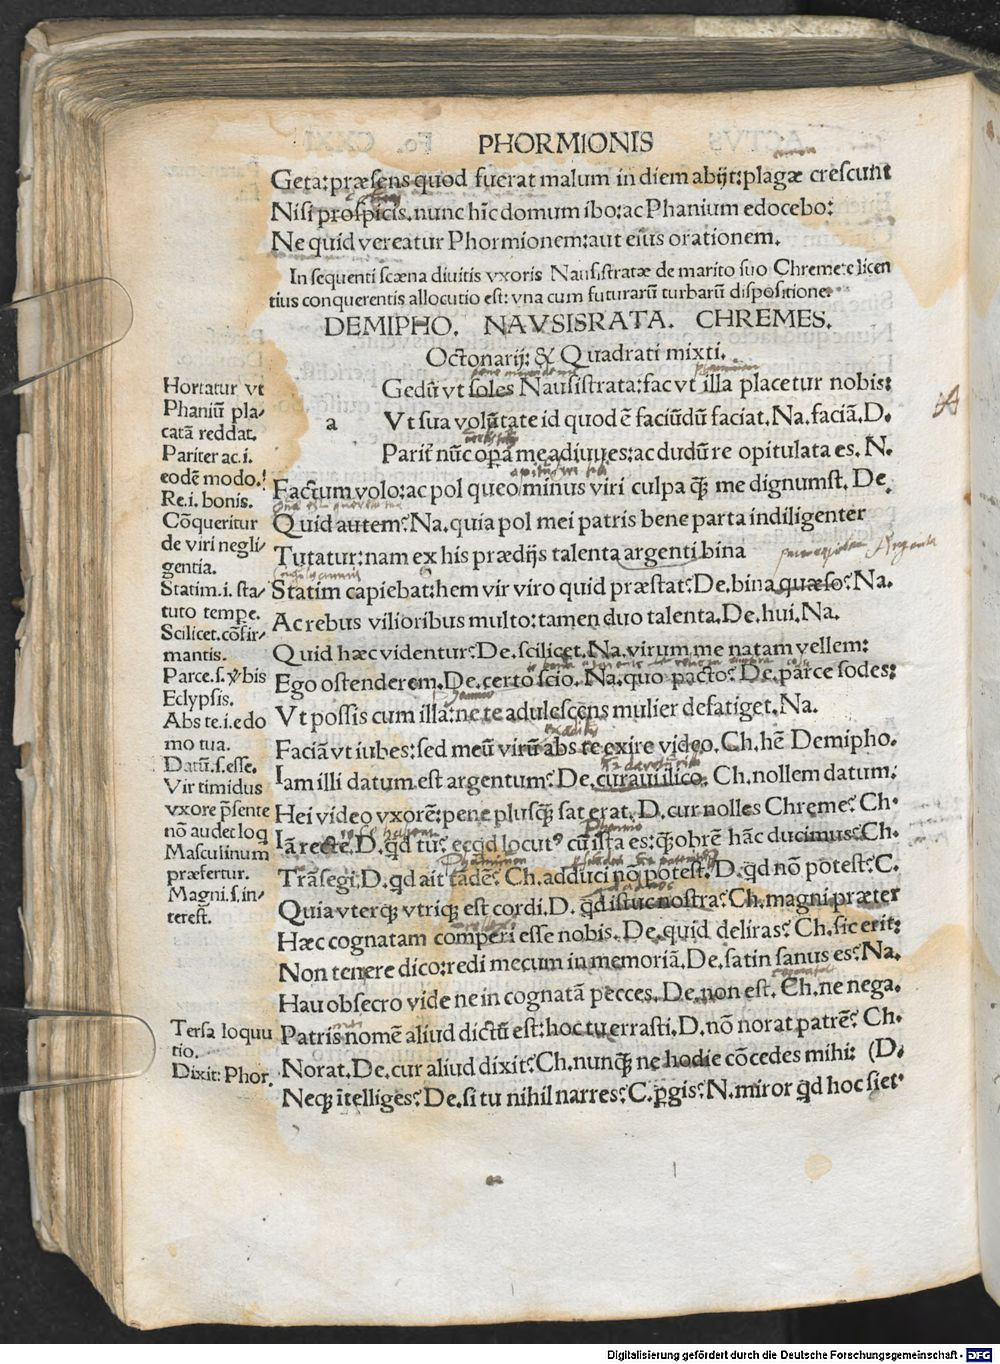 PHORMIONIS
Geta: præsens quod fuerat malum in diem abijt: plagæ crescunt
Nisi prospicis. nunc hīc domum ibo: ac Phanium edocebo:
Ne quid vereatur Phormionem: aut eius orationem.
In sequenti scæna diuitis vxoris Nausistratæ de marito suo Chremete licen
tius conquerentis allocutio est: vna cum futurarū turbarū dispositione.
DEMIPHO. NAVSISRATA. CHREMES.
Octonarij: & Quadrati mixti.
Gedū vt soles Nausistrata: fac vt illa placetur nobis:
a
Vt sua volūtate id quod ē faciūdū faciat. Na. faciā. D.
Parit̄ nūc opā me adiuues: ac dudū re opitulata es. N.
Factum volo: ac pol queo minus viri culpa q̄ȝ me dignumst. De.
Quid autem? Na. quia pol mei patris bene parta indiligenter
Tutatur: nam ex his prædijs talenta argenti bina
Statim capiebat: hem vir viro quid præstat? De. bina quæso? Na.
Ac rebus vilioribus multo: tamen duo talenta. De. hui. Na.
Quid hæc videntur? De. scilicet. Na. virum me natam vellem:
Ego ostenderem. De. certo scio. Na. quo pacto? De. parce sodes:
Vt possis cum illa: ne te adulescens mulier defatiget. Na.
Faciā vt iubes: sed meū virū abs te exire video. Ch. hē Demipho.
Iam illi datum est argentum? De. curaui ilico. Ch. nollem datum:
Hei video vxorē: pene plusq̄ȝ sat erat. D. cur nolles Chreme? Ch.
Iā recte. D. qd tu? ecqd locutꝰ cū ista es: q̄ȝobrē hāc ducimus? Ch.
Trāsegi. D. qd ait tādē? Ch. adduci nō potest. D. qd nō potest? C.
Quia vterqȝ vtriqȝ est cordi. D. qd istuc nostra? Ch. magni præter
Hæc cognatam comperi esse nobis. De. quid deliras? Ch. sic erit:
Non temere dico: redi mecum in memoriā. De. satin sanus es? Na.
Hau obsecro vide ne in cognatā pecces. De. non est. Ch. ne nega.
Patris nomē aliud dictū est: hoc tu errasti. D. nō norat patrē? Ch.
Norat. De. cur aliud dixit? Ch. nunq̄ȝ ne hodie cōcedes mihi: (D.
Neqȝ ītelliges? De. si tu nihil narres? C. ꝑgis? N. miror qd hoc siet.
Hortatur vt
Phaniū pla-
catā reddat.
Pariter ac .i.
eodē modo.
Re .i. bonis.
Cōqueritur
de viri negli-
gentia.
Statim .i. sta-
tuto tempe.
Scilicet. cōfir-
mantis.
Parce. s. ybis
Eclypsis.
Abs te .i. e do
mo tua.
Datū. s. esse.
Vir timidus
vxore p̄sente
nō audet loq
Masculinum
præfertur.
Magni. s. in-
terest.
Tersa loquu
tio.
Dixit: Phor.
Digitalisierung gefördert durch die Deutsche Forschungsgemeinschaft - DFG